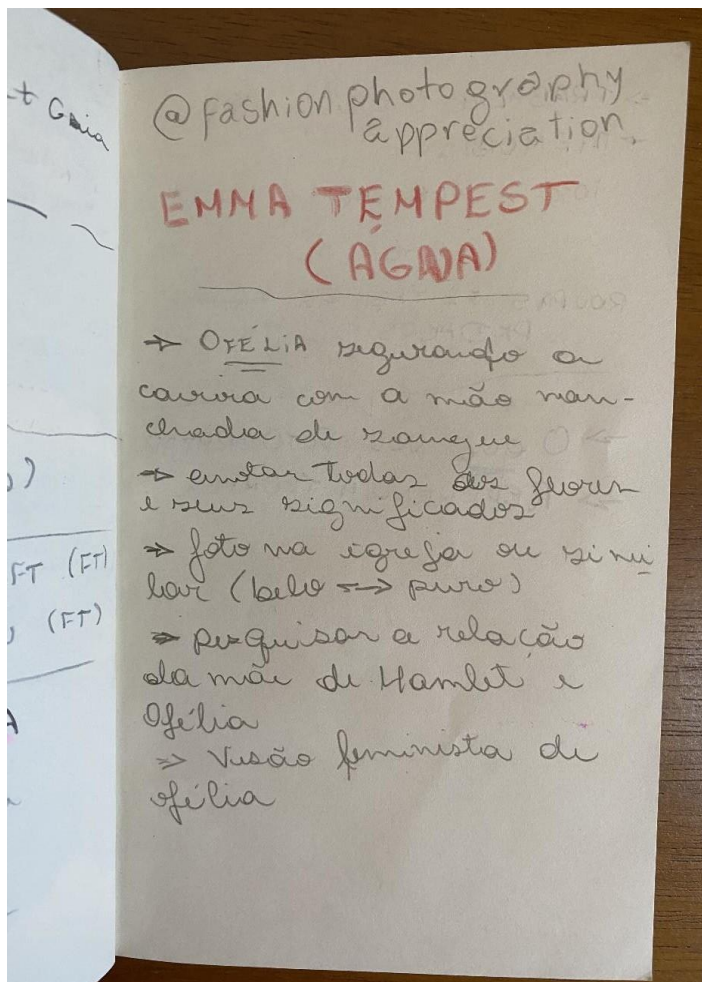 t Gaia
FT (FT)
(FT)
@fashionphotography
appreciation
EMMA TEMPEST
(ÁGAIA)
→ OFÉLIA segurando a
com a mão man-
chada de sangue
→ anotar todas as flores
e seus significados
→ foto na igreja ou simi
lar (belo → puro)
→ pesquisar a relação
da mãe de Hamlet e
Ofélia
→ Visão feminista de
ofélia